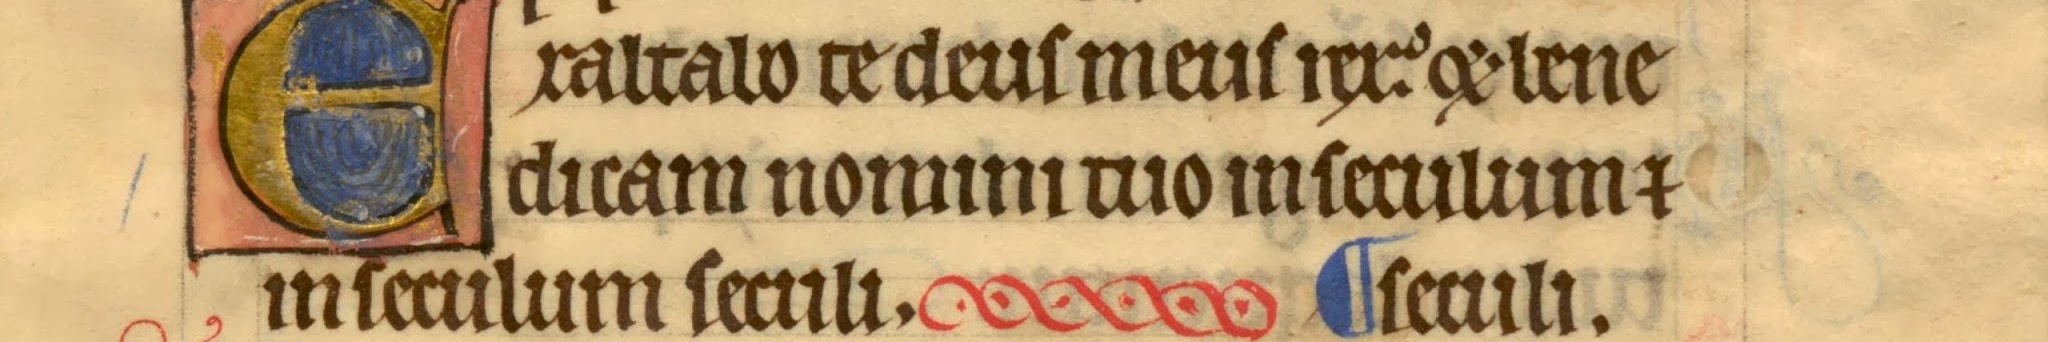 Exaltabo te deus meus rex: ⁊ bene
dicam nomini tuo in seculum ⁊
in seculum seculi. ¶ seculi.